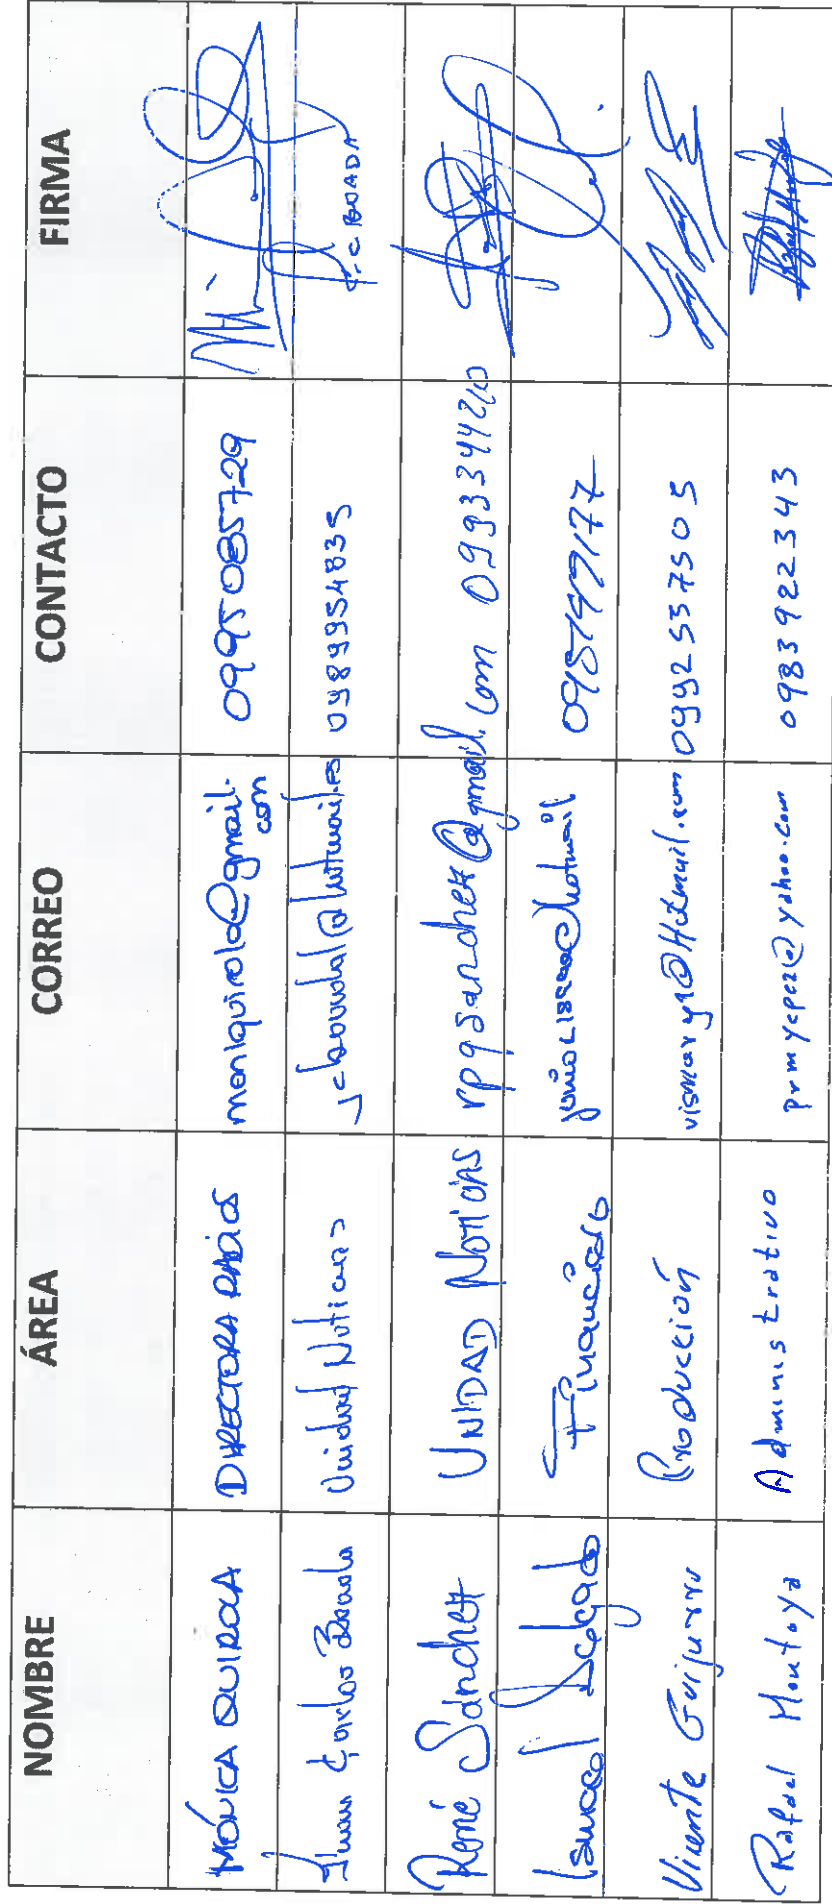 NOMBRE ÁREA CORREO CONTACTO FIRMA
MÓNICA QUIROLA DIRECTORA RADIOS moniquirola@gmail.com 0995085729
Juan Carlos Boada Unidad Noticias jcboada1@hotmail.es 0989954835 J.C BOADA
René Sánchez UNIDAD Noticias rpqsanchez@gmail.com 0993344260
Ismael Delgado Financiero
Vicente Guijarro Producción 0992537505
Rafael Montoya Administrativo prmyepez@yahoo.com 0983922343